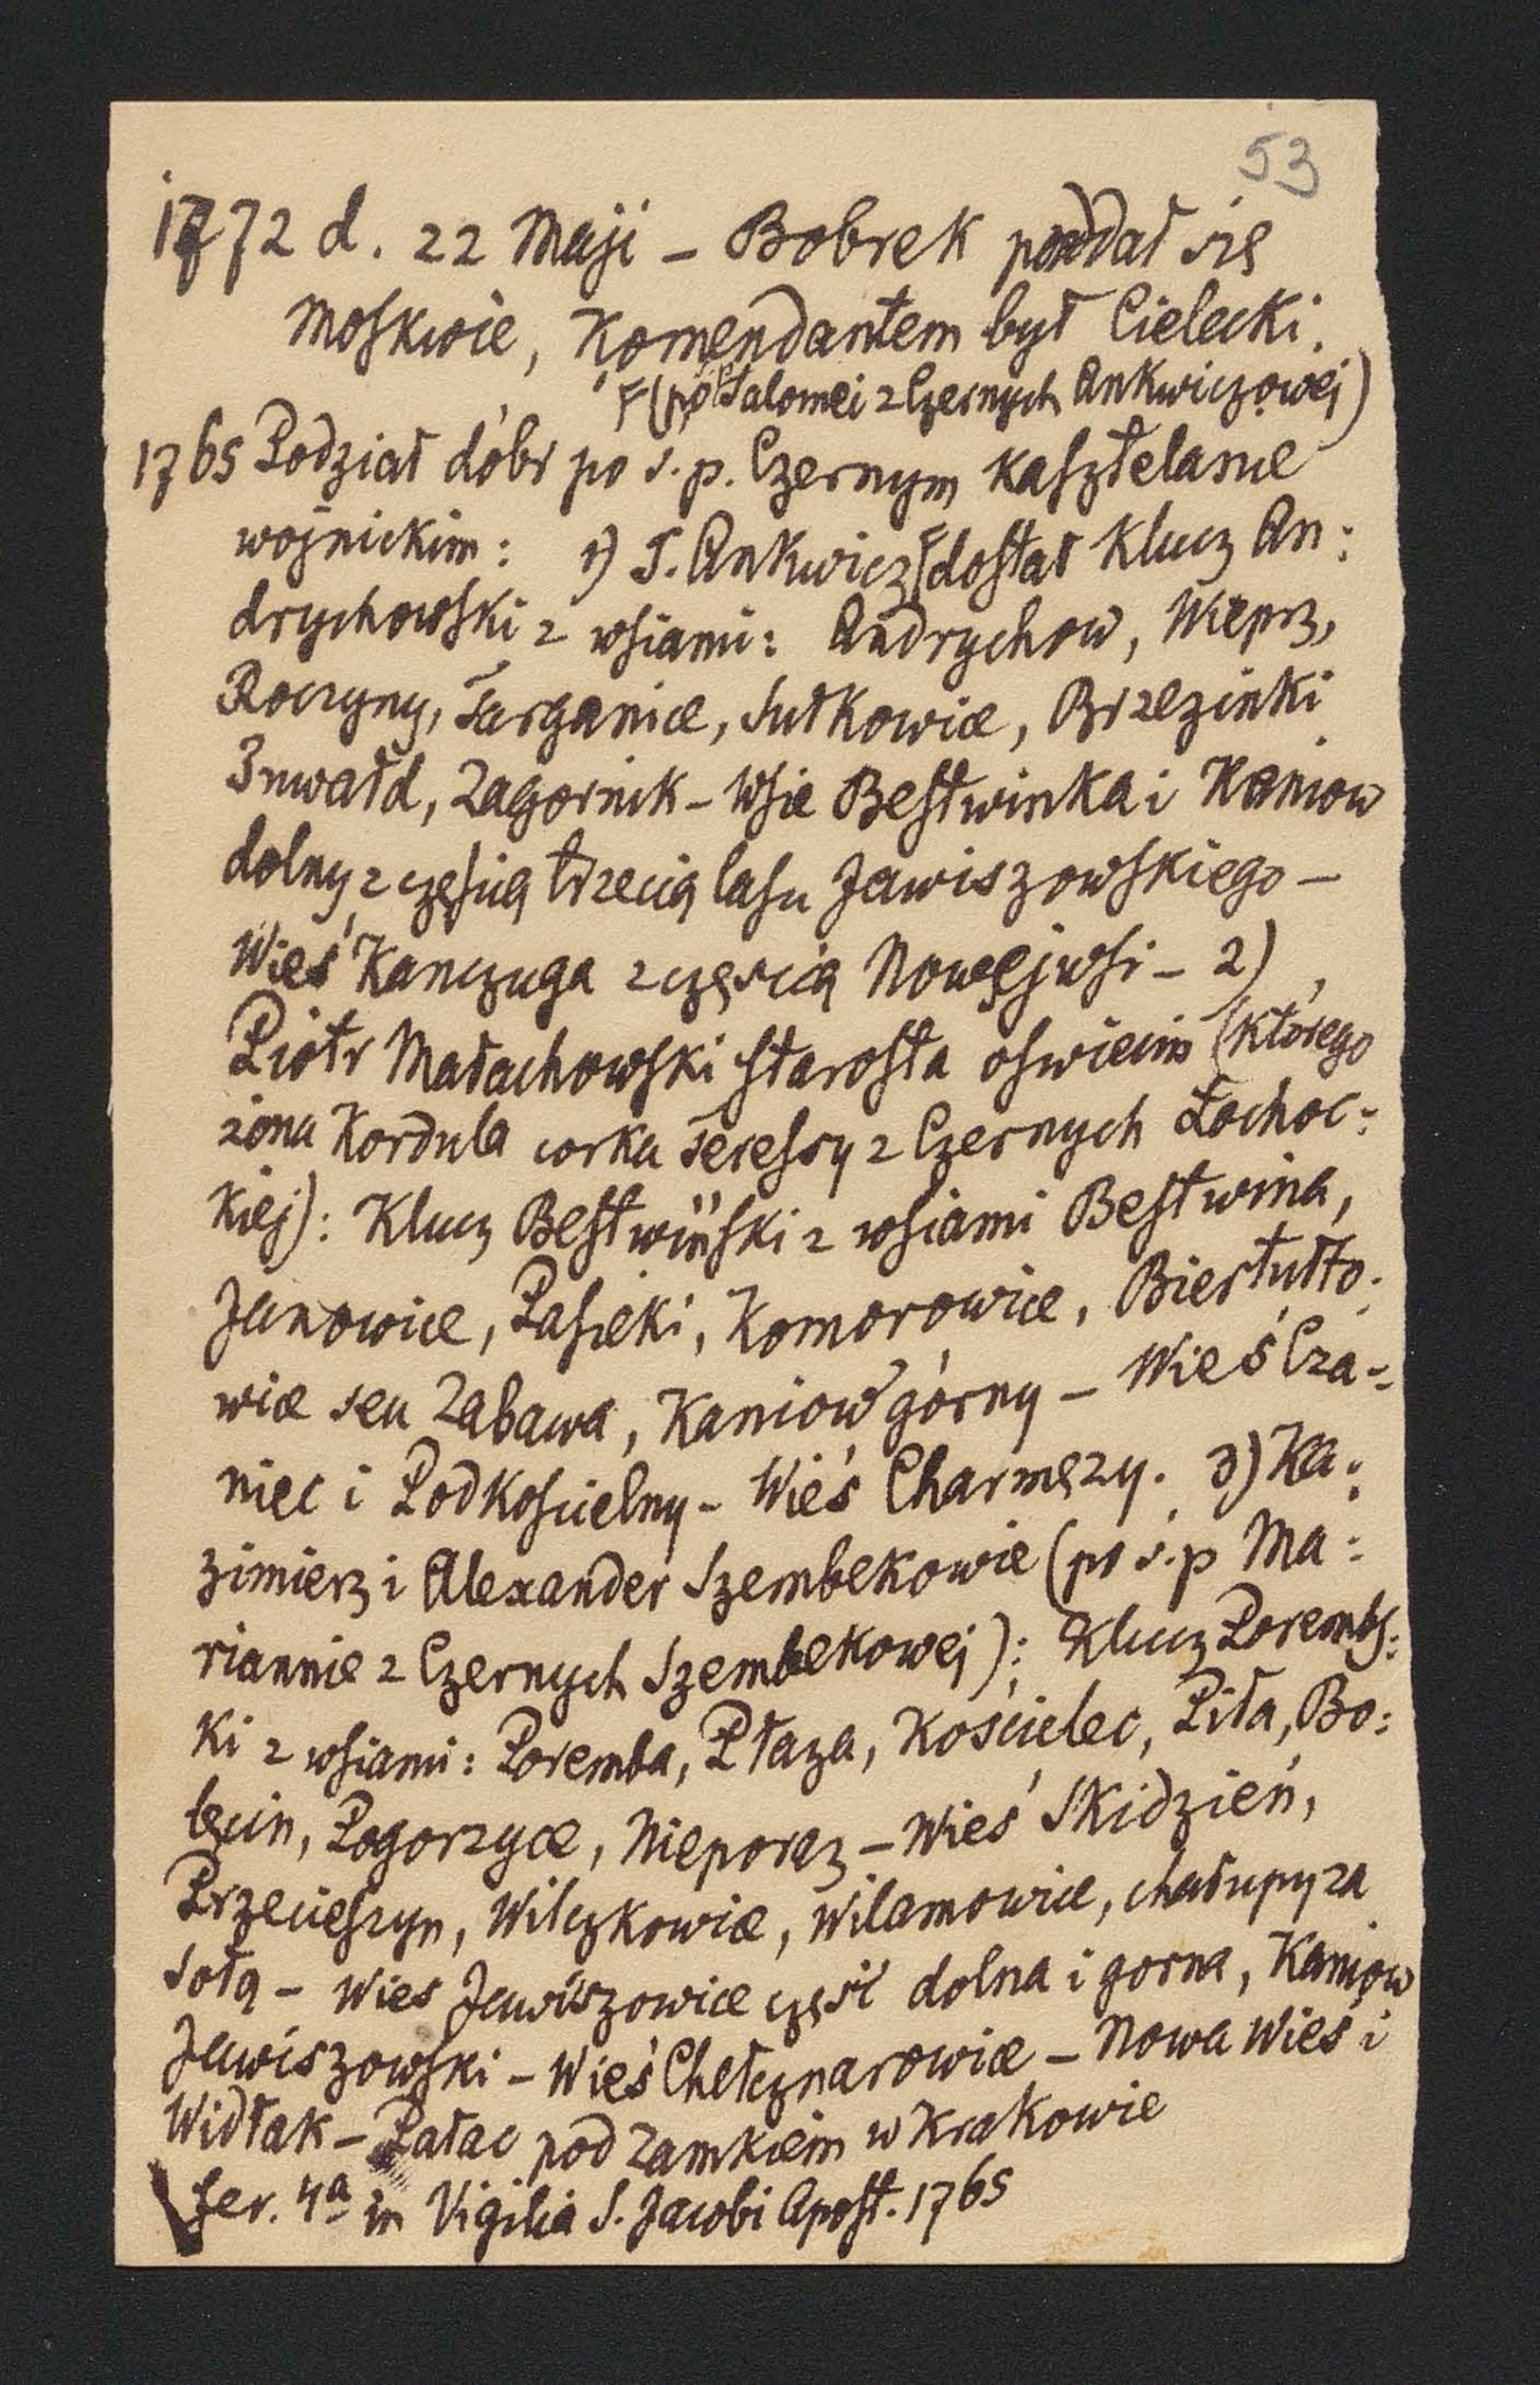 53
1772 d. 22 Maji - Bobrek poddał się
Moskwie, Komendantem był Cielecki.
F(po Salomei z Czernych Ankwiczowej)
1765 Podział dóbr po s.p. Czernym kasztelanie
wojnickim: 1) T. Ankwicz F dostał Klucz An:
drychowski z wsiami: Andrychow, Wieprz,
Roczyny, Targanice, Sułkowice, Brzezinki
Inwałd, Zagornik - Wsie Bestwinka i Kaniow
dolny z częscią trzecią lasu Jawiszowskiego -
Wieś Kanczuga z częscią Nowejwsi - 2)
Piotr Małachowski starosta oswiecim (którego
żona Kordula corka Teressy z Czernych Łochoc:
kiej): Klucz Bestwiński z wsiami Bestwina,
Janowice, Pasieki, Komorowice, Biertułto:
wice seu Zabawa, Kaniow górny - Wieś Cza:
niec i Podkoscielny - Wieś Charmęzy. 3) Ka:
zimierz i Alexander Szembekowie (po ś.p Ma:
riannie z Czernych Szembekowej): Klucz Porembs:
ki z wsiami: Poremba, Płaza, Kościelec, Piła, Bo:
lęcin, Pogorzyce, Nieporaz - Wieś Skidzień,
Przecieszyn, Wilczkowice, Wilamowice, chałupy za
Sołą - Wies Jawiszowice częsć dolna i gorna, Kaniow
Jawiszowski - Wieś Chełcznarowice - Nowa Wieś i
Widłak - Pałac pod Zamkiem w Krakowie
fer. 4a in Vigilia S. Jacobi Apost. 1765